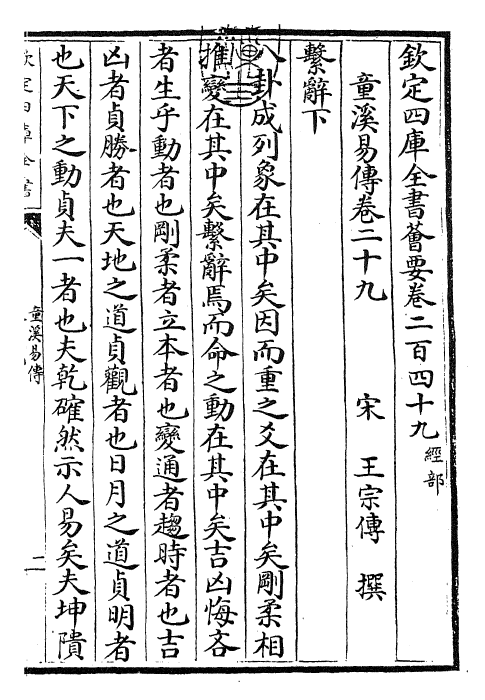 欽定四庫全書薈要卷二百四十九 經部
童溪易傳卷二十九 宋 王宗傳 撰
繫辭下
八卦成列象在其中矣因而重之爻在其中矣剛柔相
推變在其中矣繫辭焉而命之動在其中矣吉凶悔吝
者生乎動者也剛柔者立本者也變通者趨時者也吉
凶者貞勝者也天地之道貞觀者也日月之道貞明者
也天下之動貞夫一者也夫乾確然示人易矣夫坤隤
欽定四庫全書
童溪易傳
二